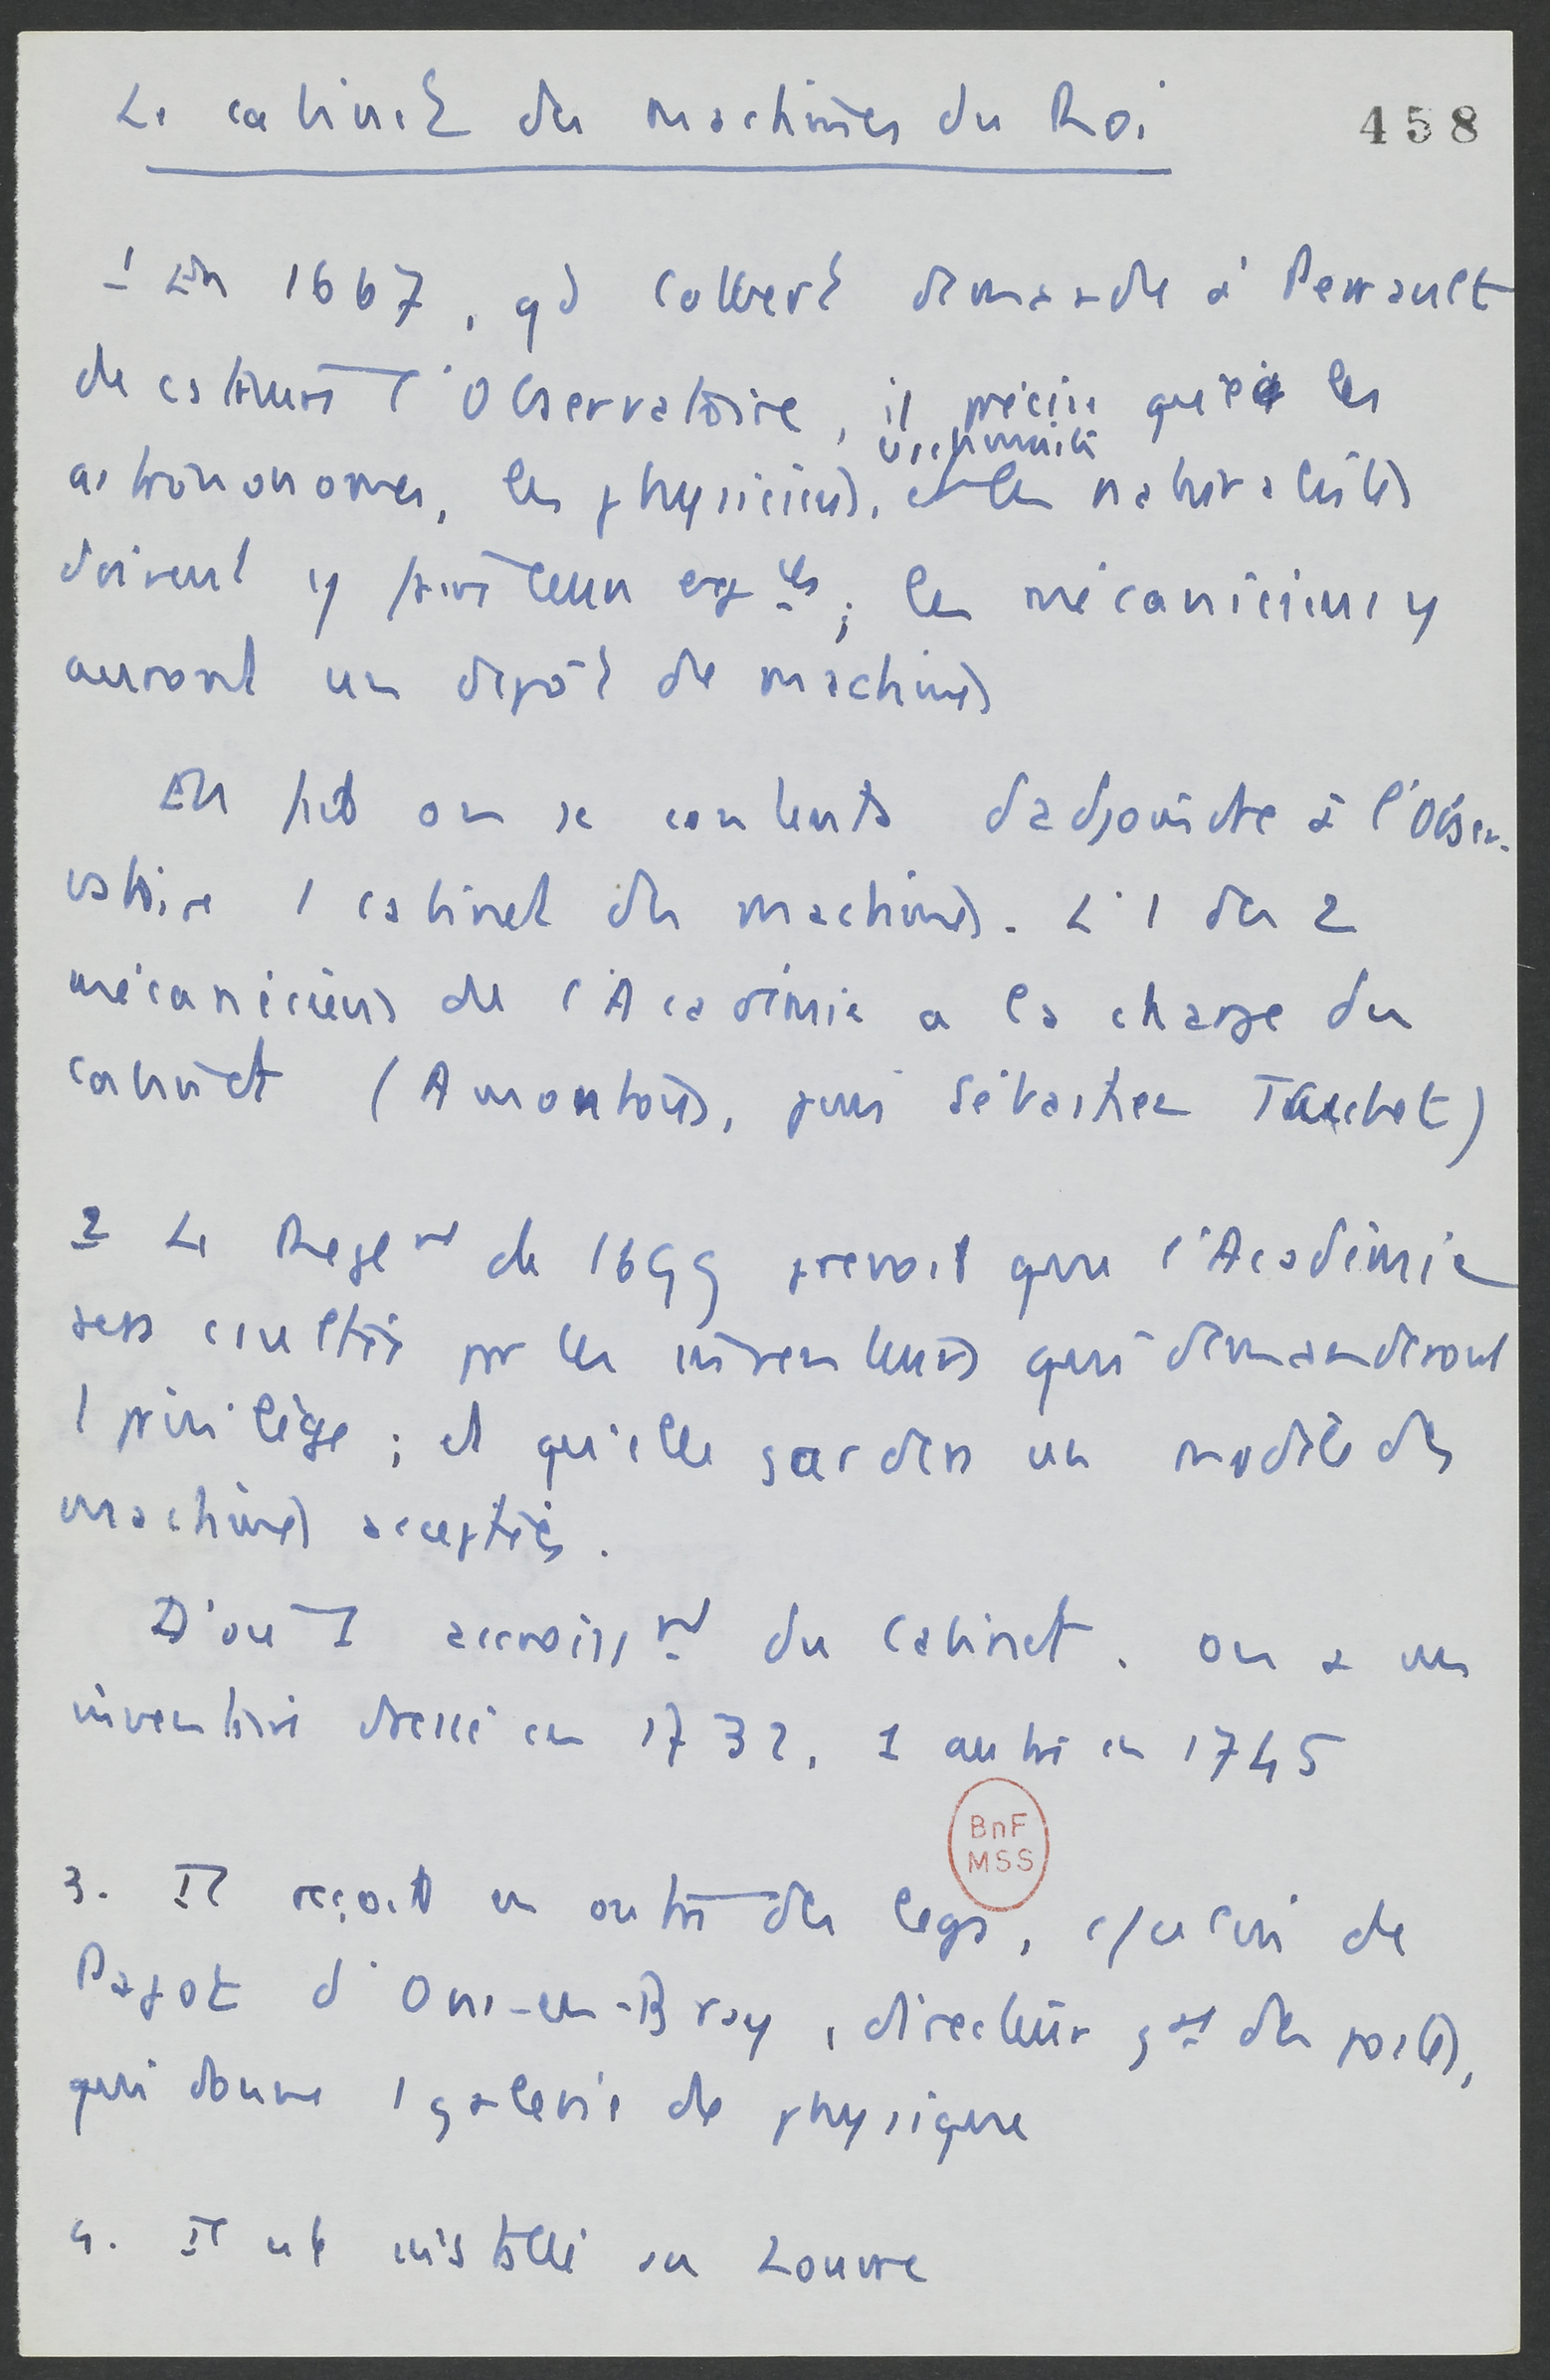 Le cabinet des machines du Roi
458
1 En 1667, qd Colbert demande à Perrault
de cstruire l'Observatoire, il précise que les
astrononomes, les physiciens, les chimistes et les naturalistes
doivent y faire leurs exp les ; les mécaniciens y
auront un dépôt de machines
En fait on se contente d'adjoindre à l'Obser-
vatoire 1 cabinet des machines. L'1 des 2
mécaniciens de l'Académie a la charge du
cabinet (Amontons, puis Sébastien Truchet)
2 Le Regemt de 1699 prevoit que l'Académie
sera csultée pr les inventeurs qui demanderont
1 privilège ; et qu'elle gardera un modèle des
machines acceptées.
D'où 1 accroissmt du Cabinet. On a un
inventaire dressé en 1732, 1 autre en 1745
BnF
MSS
3. Il reçoit en outre des legs, c/ celui de
Pajot d'Ons-en-Bray, directeur gal des postes,
qui donne 1 galerie de physique
4. Il est installé au Louvre